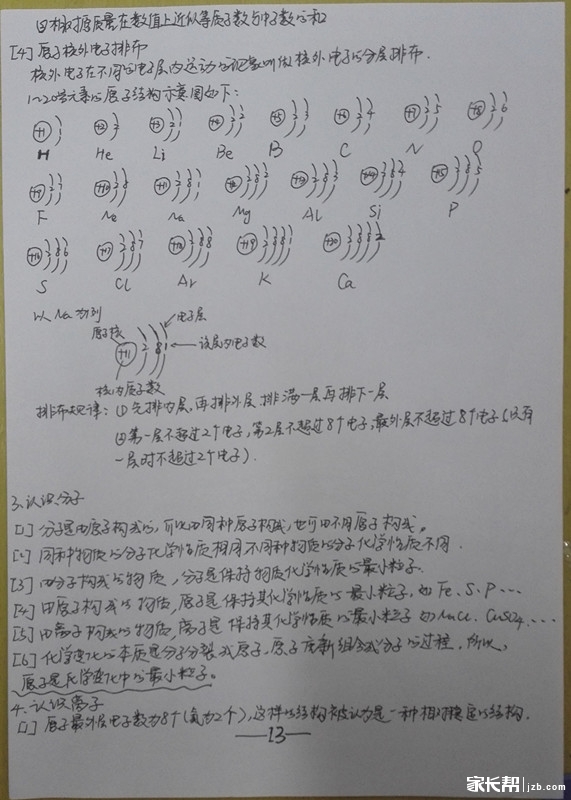 ④相对原子质量在数值上近似等质子数与中子数之和
[4] 原子核外电子排布
核外电子在不同的电子层内运动的现象叫做核外电子的分层排布.
1~20号元素的原子结构示意图如下:
+1 1 +2 2 +3 2 1 +4 2 2 +5 2 3 +6 2 4 +7 2 5 +8 2 6
H He Li Be B C N O
+9 2 7 +10 2 8 +11 2 8 1 +12 2 8 2 +13 2 8 3 +14 2 8 4 +15 2 8 5
F Ne Na Mg Al Si P
+16 2 8 6 +17 2 8 7 +18 2 8 8 +19 2 8 8 1 +20 2 8 8 2
S Cl Ar K Ca
以Na为例
电子层
原子核
+11 2 8 1
该层的电子数
核内质子数
排布规律: ①先排内层,再排外层 排满一层再排下一层
②第一层不超过2个电子,第2层不超过8个电子,最外层不超过8个电子(只有
一层时不超过2个电子).
3.认识分子
[1] 分子是由原子构成的,可以由同种原子构成,也可由不同原子构成。
[2] 同种物质的分子化学性质相同不同种物质的分子化学性质不同.
[3] 由分子构成的物质,分子是保持物质化学性质的最小粒子.
[4] 由原子构成的物质,原子是保持其化学性质的最小粒子,如Fe.S.P…
[5] 由离子构成的物质,离子是保持其化学性质的最小粒子如NaCl.CuSO4,…
[6] 化学变化的本质是分子分裂成原子,原子重新组合成分子的过程,所以,
原子是化学变化中的最小粒子。
4.认识离子
[1] 原子最外层电子数为8个(氦为2个),这样的结构被认为是一种相对稳定的结构.
—13—
家长帮 jzb.com